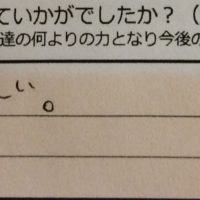 ていかがでしたか？（
達の何よりの力となり今後の
い。